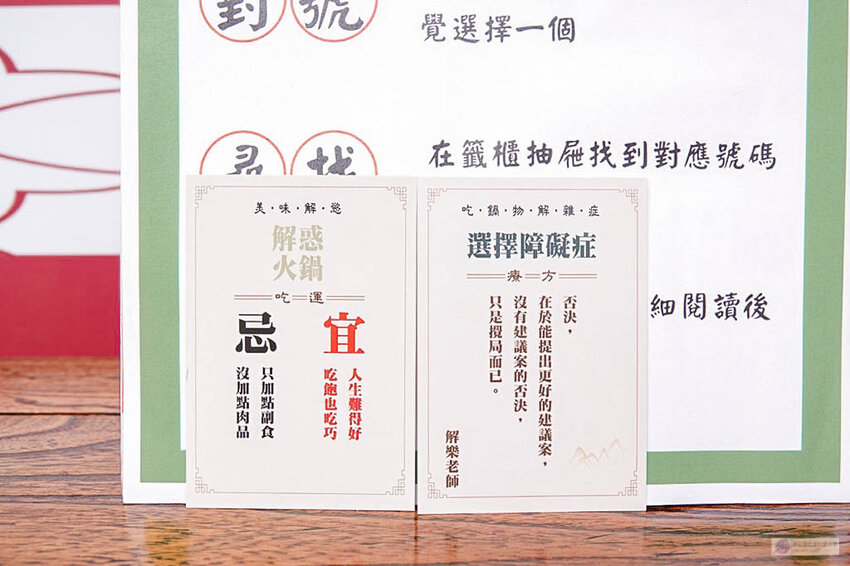 對號
覺選擇一個
尋找
在籤櫃抽屜找到對應號碼
細閱讀後
美·味·解·慾
解惑
火鍋
吃運
宜
人生難得好
吃飽也吃巧
忌
只加點副食
沒加點肉品
吃·鍋·物·解·雜·症
選擇障礙症
療方
否決，
在於能提出更好的建議案，
沒有建議案的否決，
只是攪局而已。
解樂老師